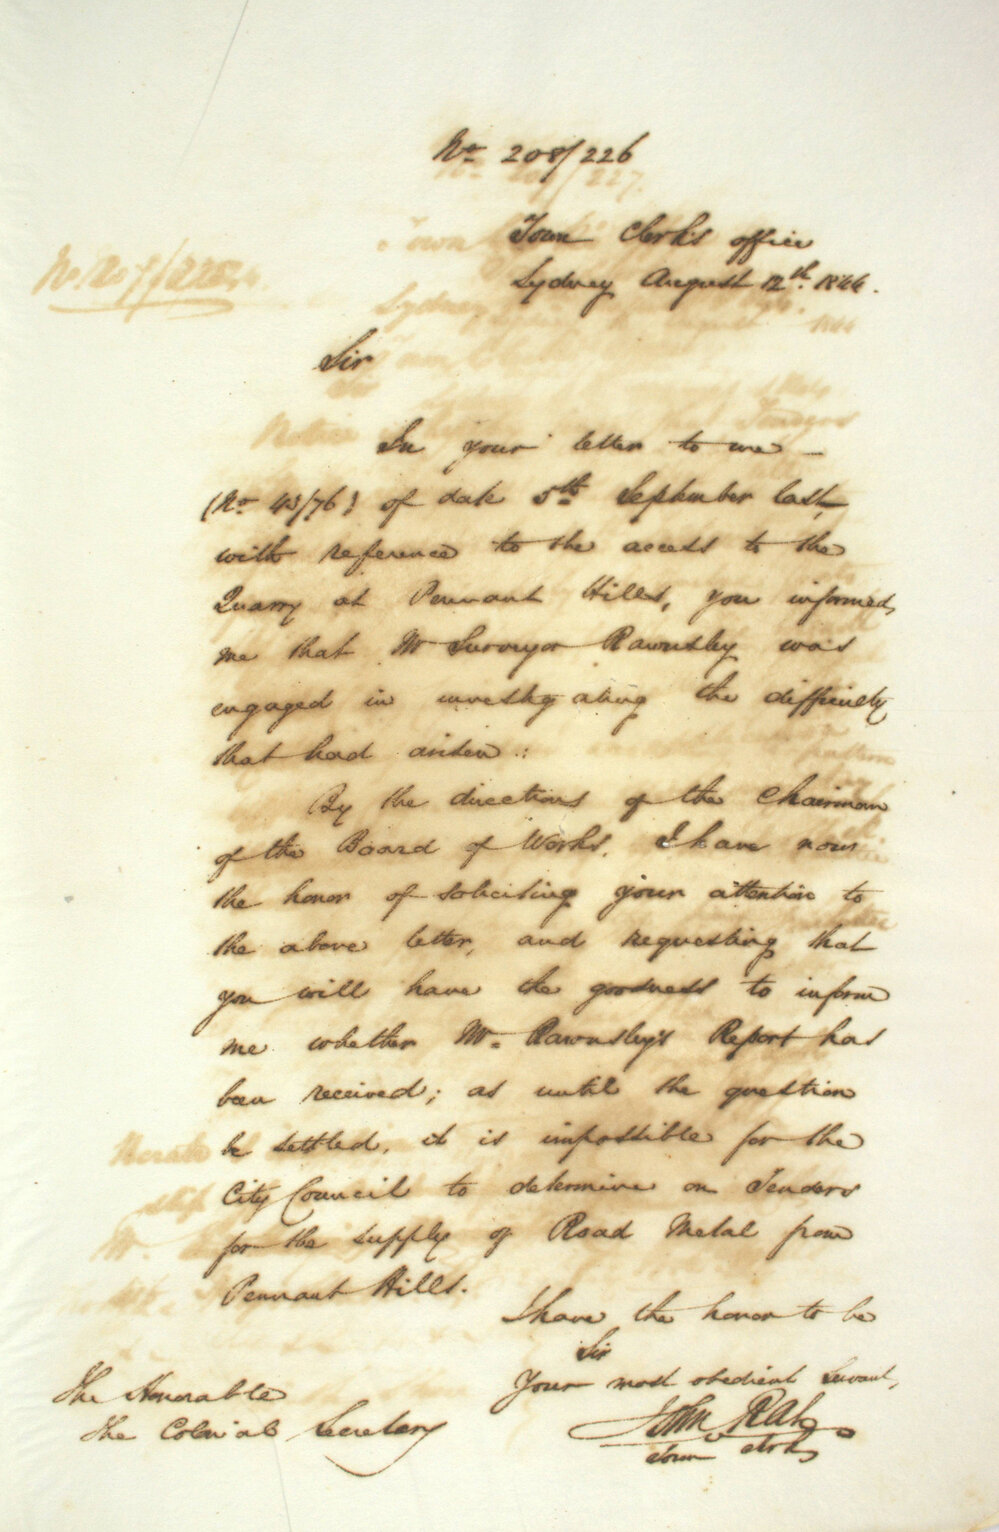 No. 208/226
Town Clerk's office
Sydney August 12th. 1844.
No. 207/225
Sir
In your letter to me
(No. 43/76) of date 5th September last,
with reference to the access to the
Quarry at Pennant Hills, you informed
me that Mr Surveyor Rawnsley was
engaged in investigating the difficulty
that had arisen.
By the directions of the Chairman
of the Board of Works, I have now
the honor of soliciting your attention to
the above letter, and requesting that
you will have the goodness to inform
me whether Mr. Rawnsley's Report has
been received; as until the question
be settled, it is impossible for the
City Council to determine on Tenders
for the supply of Road Metal from
Pennant Hills.
I have the honor to be
Sir
Your most obedient Servant,
John Rae
Town Clerk
The Honorable
The Colonial Secretary